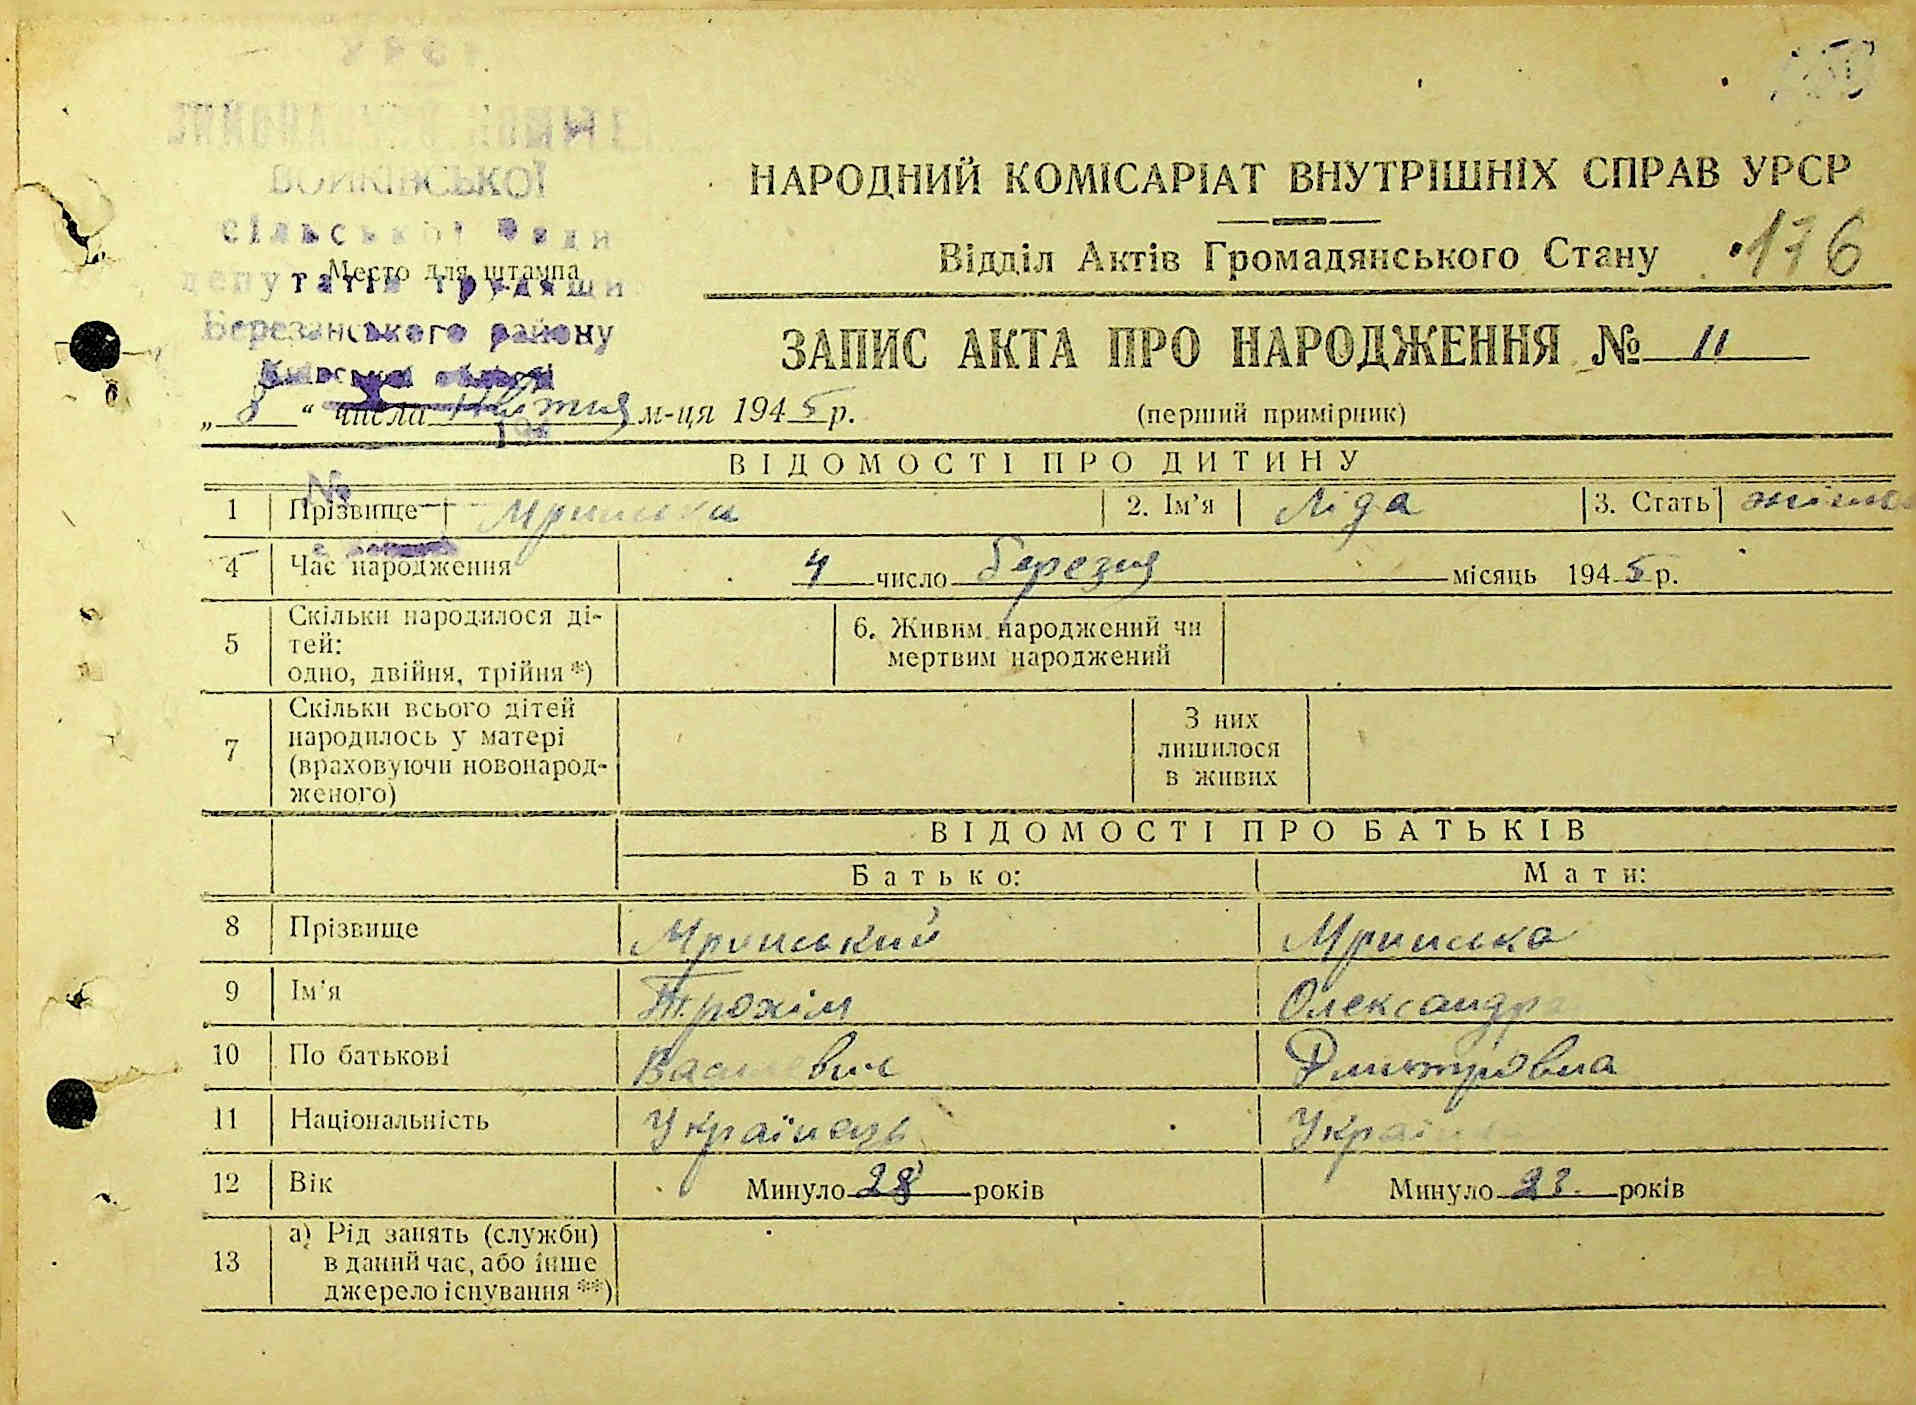 176
НАРОДНИЙ КОМІСАРІАТ ВНУТРІШНІХ СПРАВ УРСР
Відділ Актів Громадянського Стану
ВОЙКІВСЬКОЇ
сільської Ради
депутатів трудящи
Березанського району
Київської області
Место для штампа
ЗАПИС АКТА ПРО НАРОДЖЕННЯ № 11
„ 8 “ числа Квітня м-ця 1945 р.
(перший примірник)
ВІДОМОСТІ ПРО ДИТИНУ
№
1 Прізвище 2. Ім'я Ліда 3. Стать
4 Час народження 4 число березня місяць 1945 р.
5 Скільки народилося ді-
тей:
одно, двійня, трійня *)
6. Живим народжений чи
мертвим народжений
7 Скільки всього дітей
народилось у матері
(враховуючи новонарод-
женого)
З них
лишилося
в живих
ВІДОМОСТІ ПРО БАТЬКІВ
Батько: Мати:
8 Прізвище Мринський Мринска
9 Ім'я Трохім Олександра
10 По батькові Дмитровна
11 Національність Українець Українка
12 Вік Минуло 28 років Минуло 23 років
13 а) Рід занять (служби)
в даний час, або інше
джерело існування **)